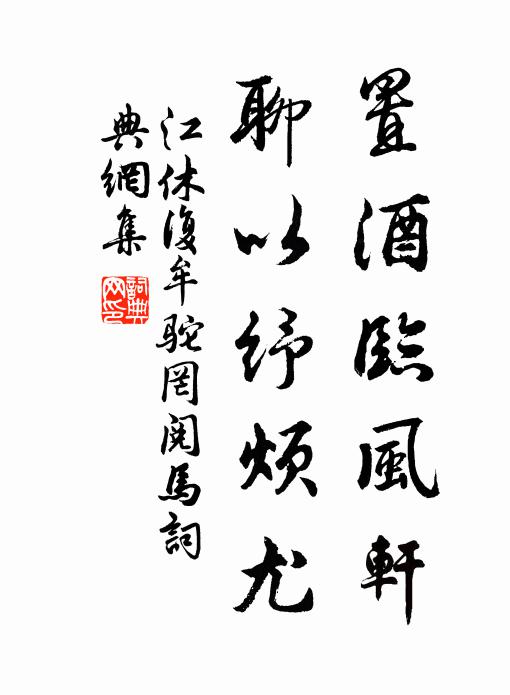 置酒臨風軒
聊以紓煩尤
江休復牟駝罔閱馬詞
典網集
詞典网印